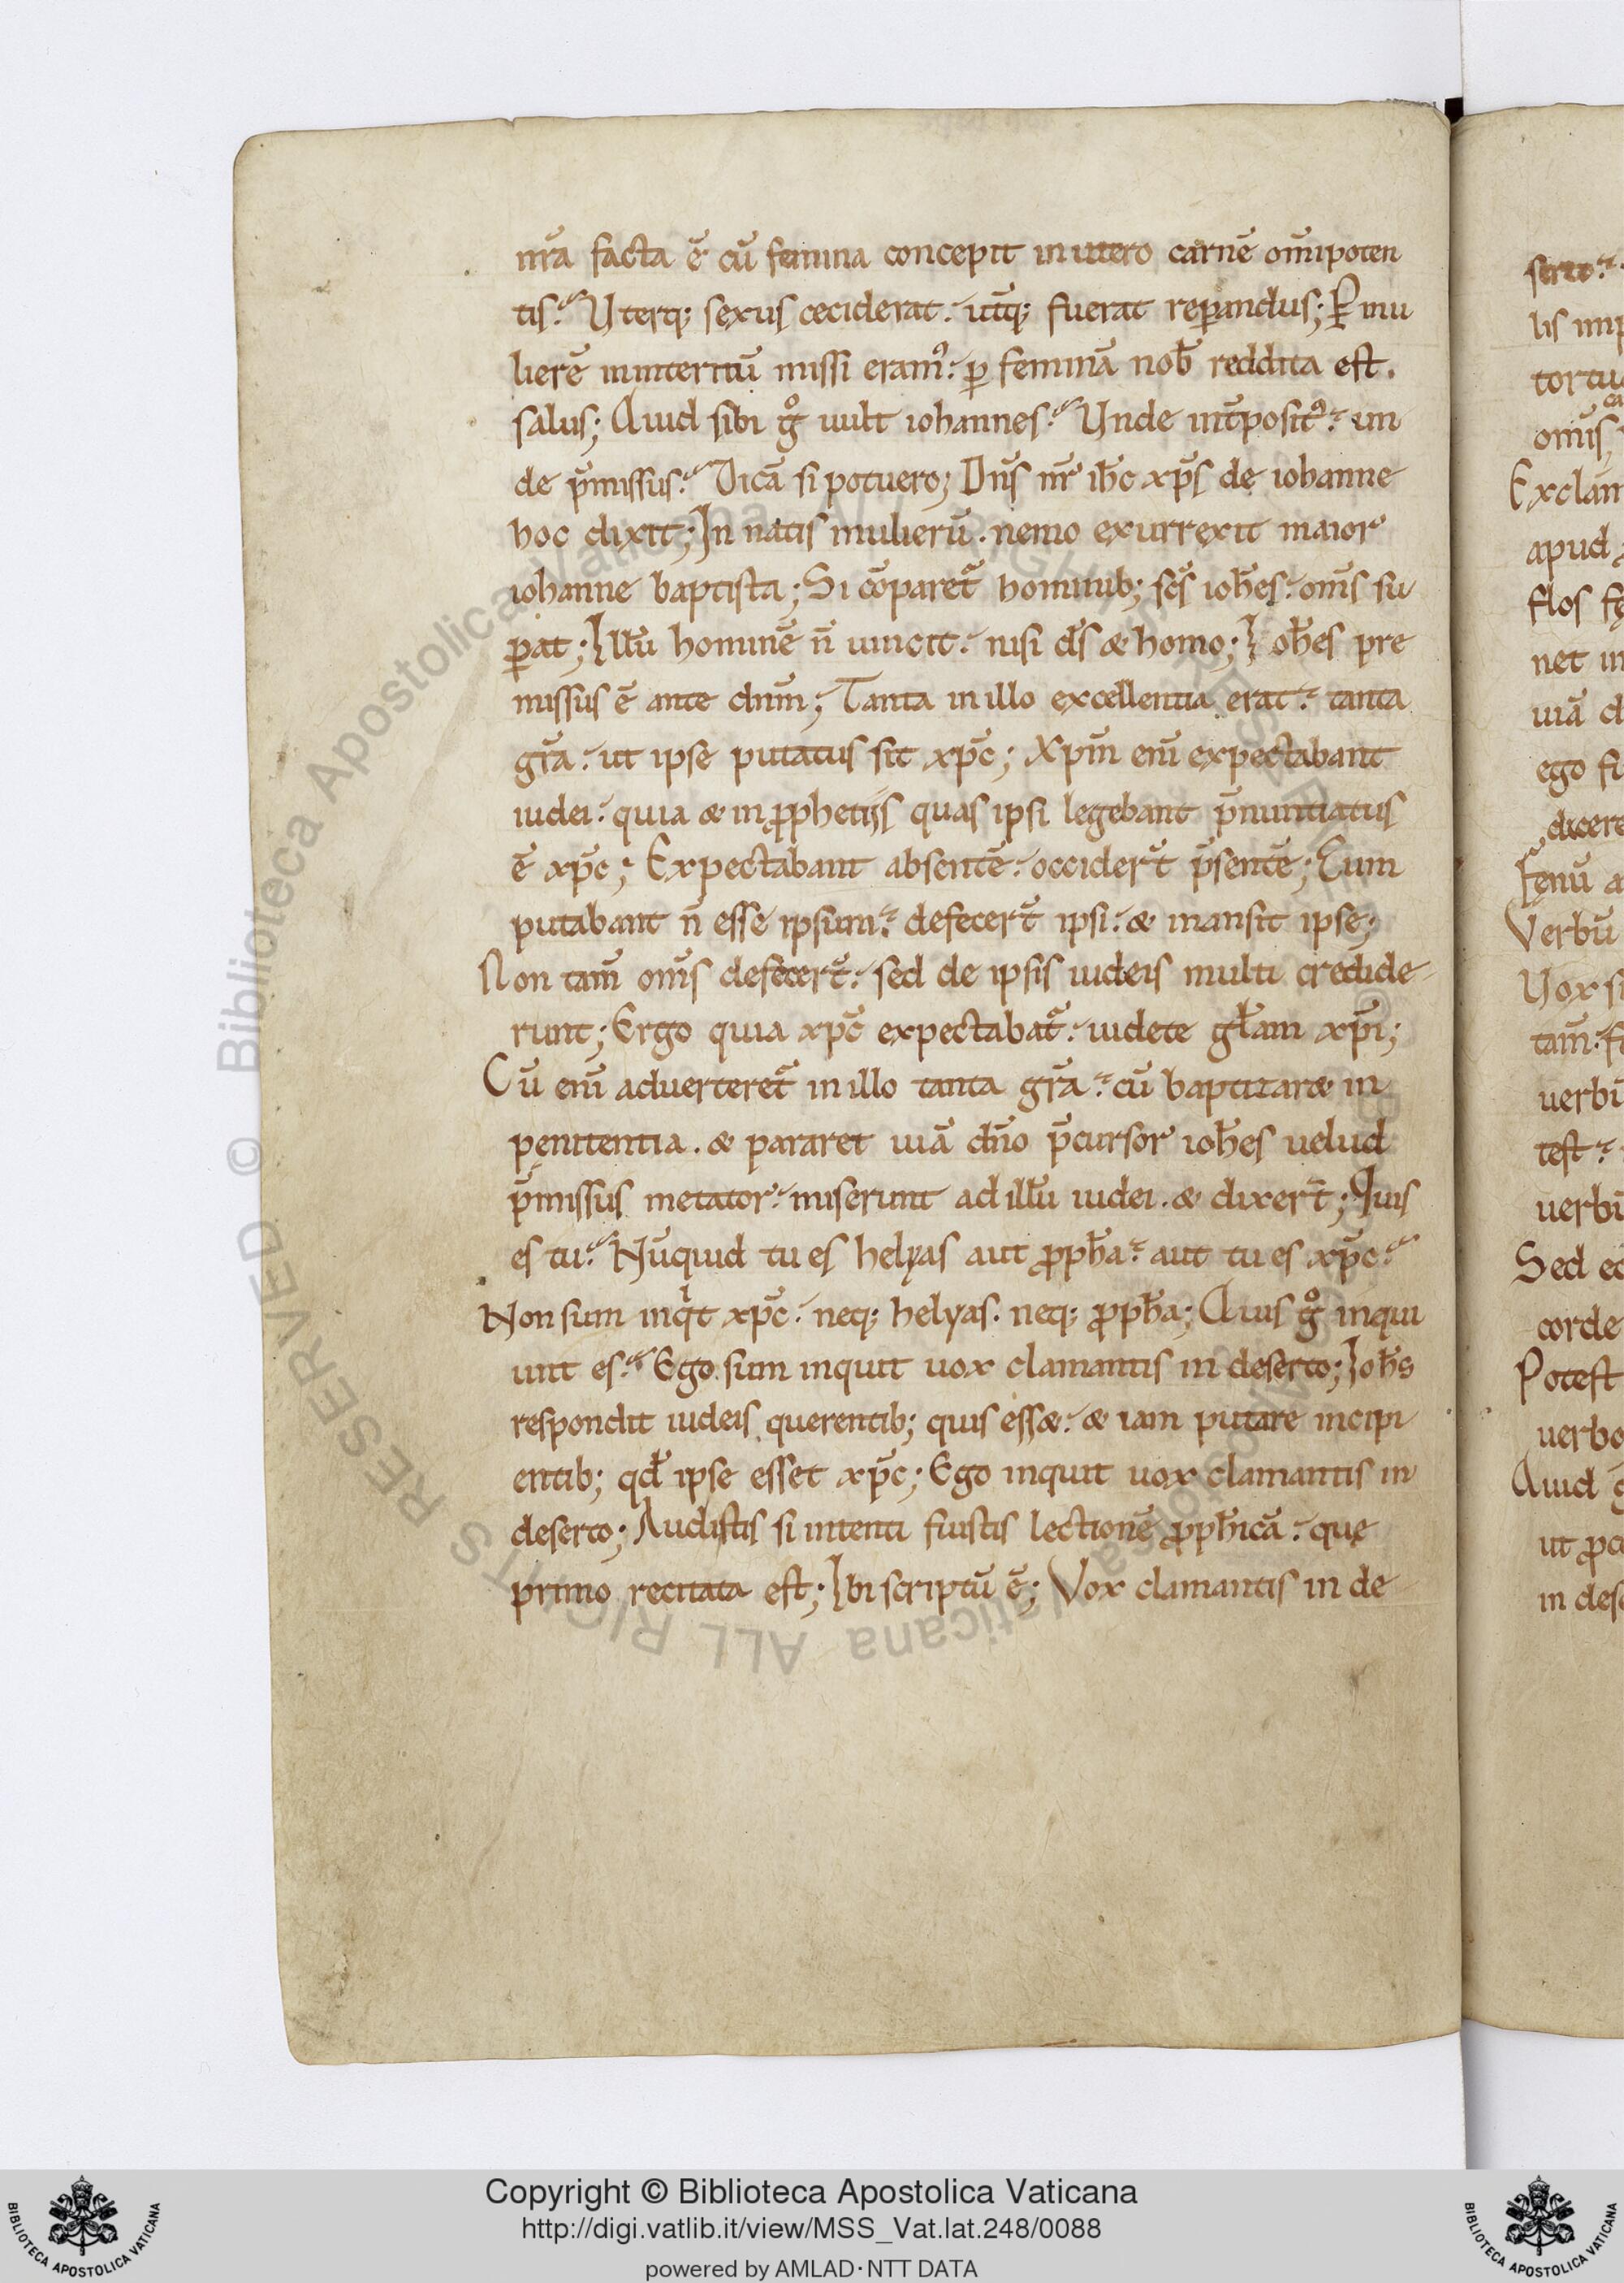 nr̄a facta ē cū femina concepit in utero carnē om̄ipoten
tis. Uterq; sexus ceciderat. utq̄; fuerat reꝑandus; Ꝑ mu
lierē in interitū missi eram᷒. ꝑ feminā nob̄ reddita est.
salus; Quid sibi gͦ uult iohannes. Unde int̄posit᷒. un
de p̄missus. Dicā si potuero; Dn̄s nr̄ ih̄c xp̄s de iohanne
hoc dixit; In natis mulierū. nemo exurrexit maior
iohanne baptista; Si cōparet᷑ hominib; sc̄s ioh̄es. om̄s su
ꝑat; Illū hominē n̄ uincit. nisi ds̄ & homo; Ioh̄es pre
missus ē ante dnm̄; Tanta in illo excellentia erat. tanta
gr̄a. ut ipse putatus sit xp̄c; Xpm̄ eni̅ expectabant
iudei. quia & in ꝓphetijs quas ipsi legebant p̄nuntiatus
ē xp̄c; Expectabant absentē. occider̄t p̄sentē; Eum
putabant n̄ esse ipsum. defecer̄t ipsi. & mansit ipse;
Non tam̄ om̄s defecer̄t. sed de ipsis iudeis multi credide
runt; Ergo quia xp̄c expectabat᷑. uidete gl̄am xp̄i;
Cū eni̅ aduerteret᷑ in illo tanta gr̄a. cū baptizar& in
penitentia. & pararet uiā dn̄o p̄cursor ioh̄es uelud
p̄missus metator. miserunt ad illū iudei. & dixer̄t; Quis
es tu. Nūquid tu es helyas aut ꝓph̄a. aut tu es xp̄c.
Non sum inqͥt xp̄c. neq; helyas. neq; ꝓph̄a; Quis gͦ inqui
unt es. Ego sum inquit uox clamantis in deserto; Ioh̄s
respondit iudeis querentib; quis ess&. & iam putare incipi
entib; qd̄ ipse esset xp̄c; Ego inquit uox clamantis in
deserto; Audistis si intenti fuistis lectionē ꝓph̄icā. quę
primo recitata est; Ibi scriptū ē; Vox clamantis in de
lis
tortu
om̄is
Exclam
apud
flos
net in
uiā d
ego
dicere
Fenū a
Verbū
Vox si
tam̄.
uerbū
test
uerbū
Sed ec
corde
Potest
uerbo
Quid
ut
in des
© Biblioteca Apostolica Vaticana ALL RIGHTS RESERVED
Copyright © Biblioteca Apostolica Vaticana
http://digi.vatlib.it/view/MSS_Vat.lat.248/0088
powered by AMLAD·NTT DATA
BIBLIOTECA APOSTOLICA VATICANA
BIBLIOTECA APOSTOLICA VATICANA